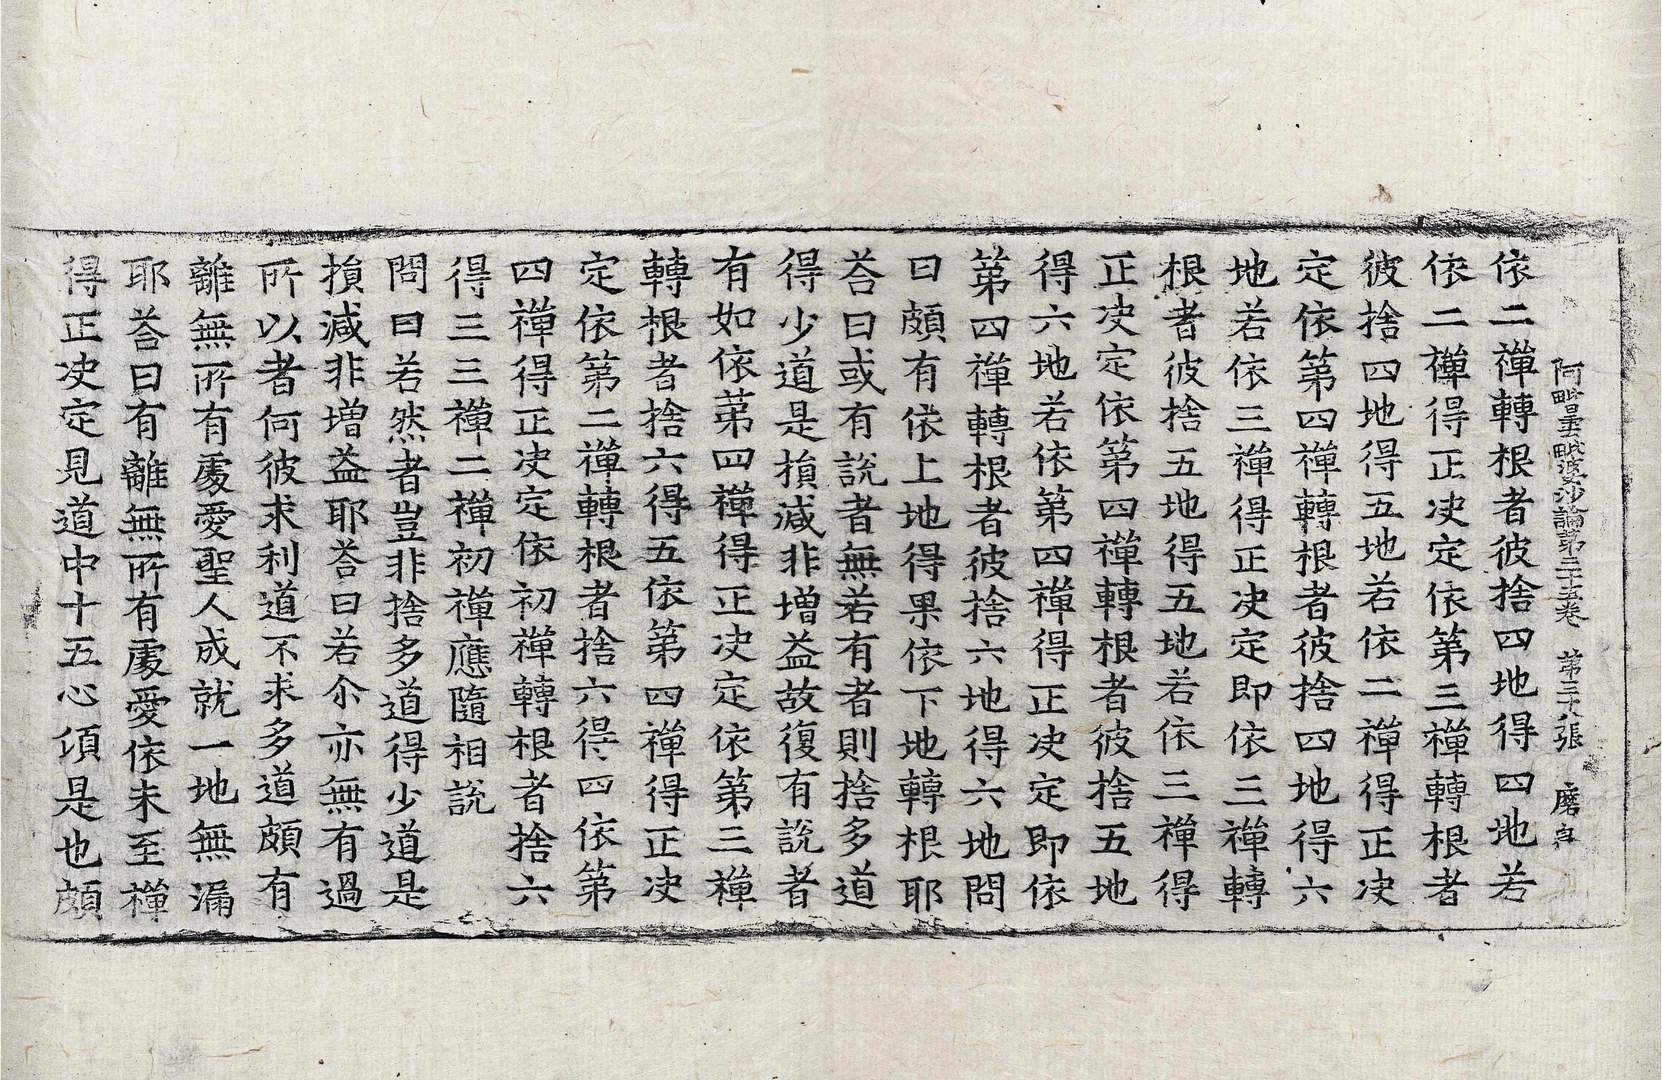 阿毗曇毗婆沙論第三十五卷 第三十八張 磨
依二禪轉根者彼捨四地得四地若
依二禪得正决定依第三禪轉根者
彼捨四地得五地若依二禪得正决
定依第四禪轉根者彼捨四地得六
地若依三禪得正决定即依三禪轉
根者彼捨五地得五地若依三禪得
正决定依第四禪轉根者彼捨五地
得六地若依第四禪得正决定即依
第四禪轉根者彼捨六地得六地問
曰頗有依上地得果依下地轉根耶
荅曰或有說者無若有者則捨多道
得少道是損減非增益故復有說者
有如依第四禪得正决定依第三禪
轉根者捨六得五依第四禪得正决
定依第二禪轉根者捨六得四依第
四禪得正决定依初禪轉根者捨六
得三三禪二禪初禪應隨相說
問曰若然者豈非捨多道得少道是
損減非增益耶荅曰若尒亦無有過
所以者何彼求利道不求多道頗有
離無所有處愛聖人成就一地無漏
耶荅曰有離無所有處愛依未至禪
得正决定見道中十五心須是也頗